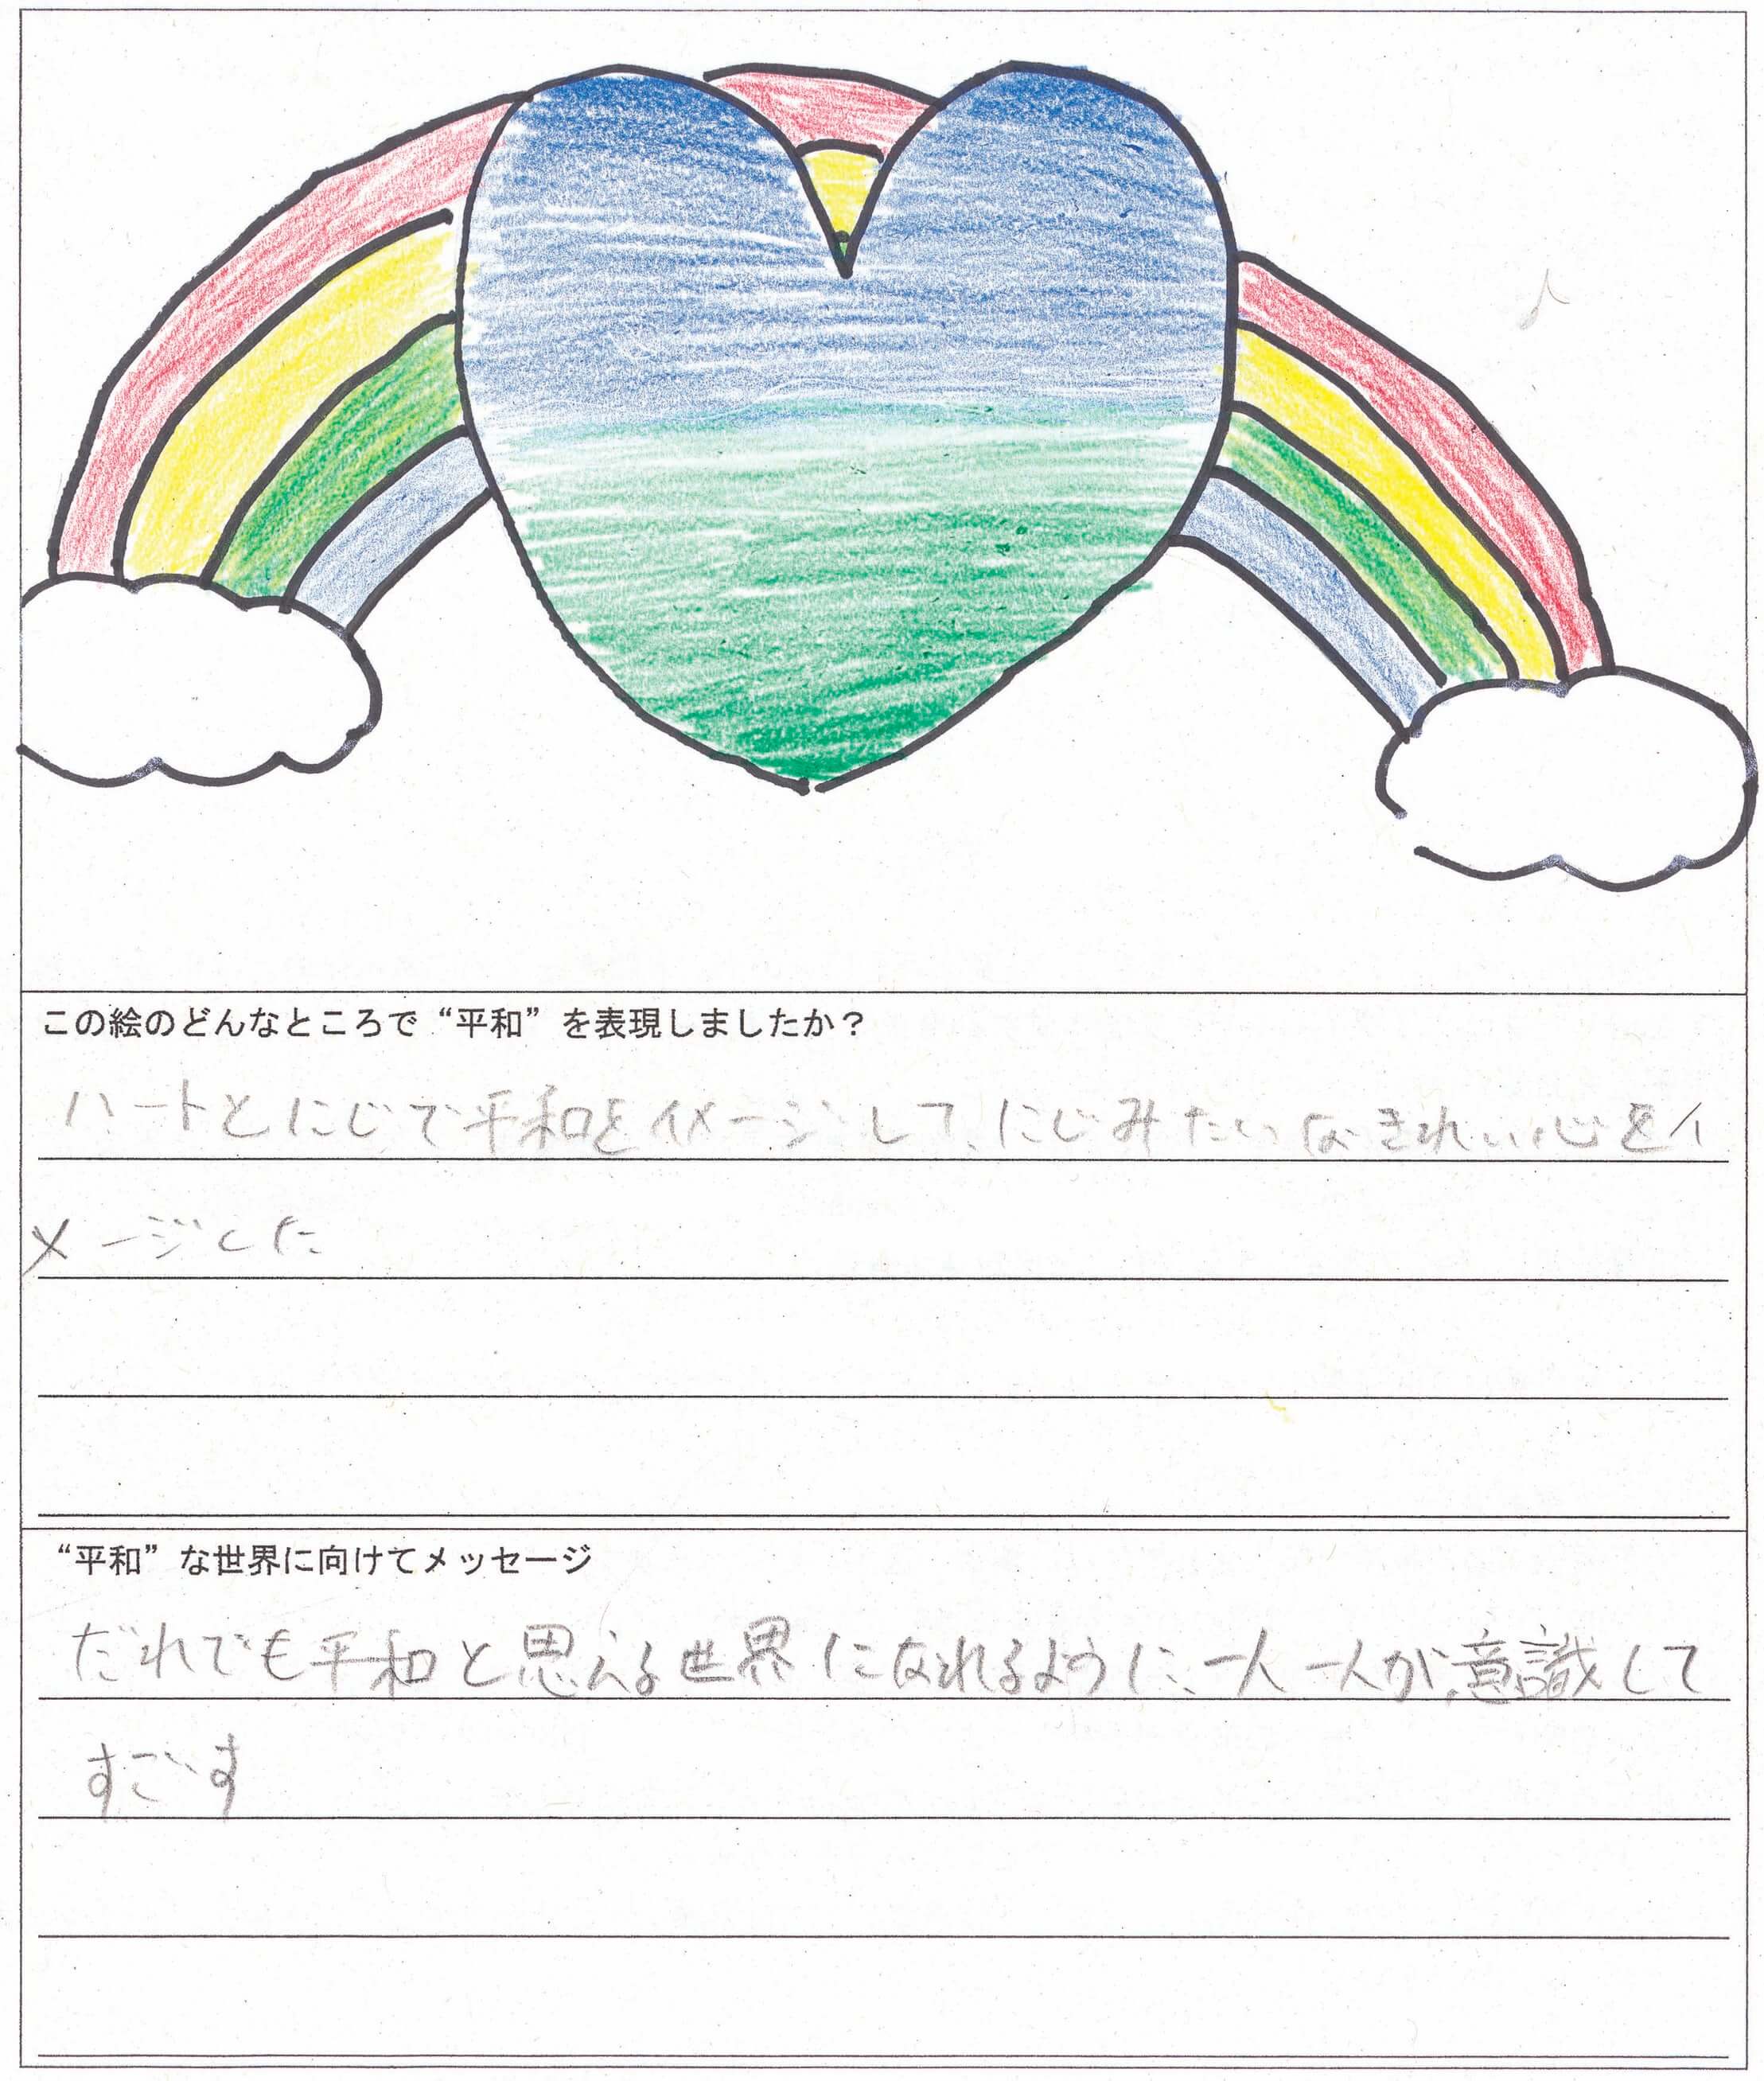 この絵のどんなところで“平和”を表現しましたか？
ハートとにじで平和をイメージして、にじみたいなきれい心をイ
メージした
“平和”な世界に向けてメッセージ
だれでも平和と思える世界になれるように、一人一人が意識して
すごす